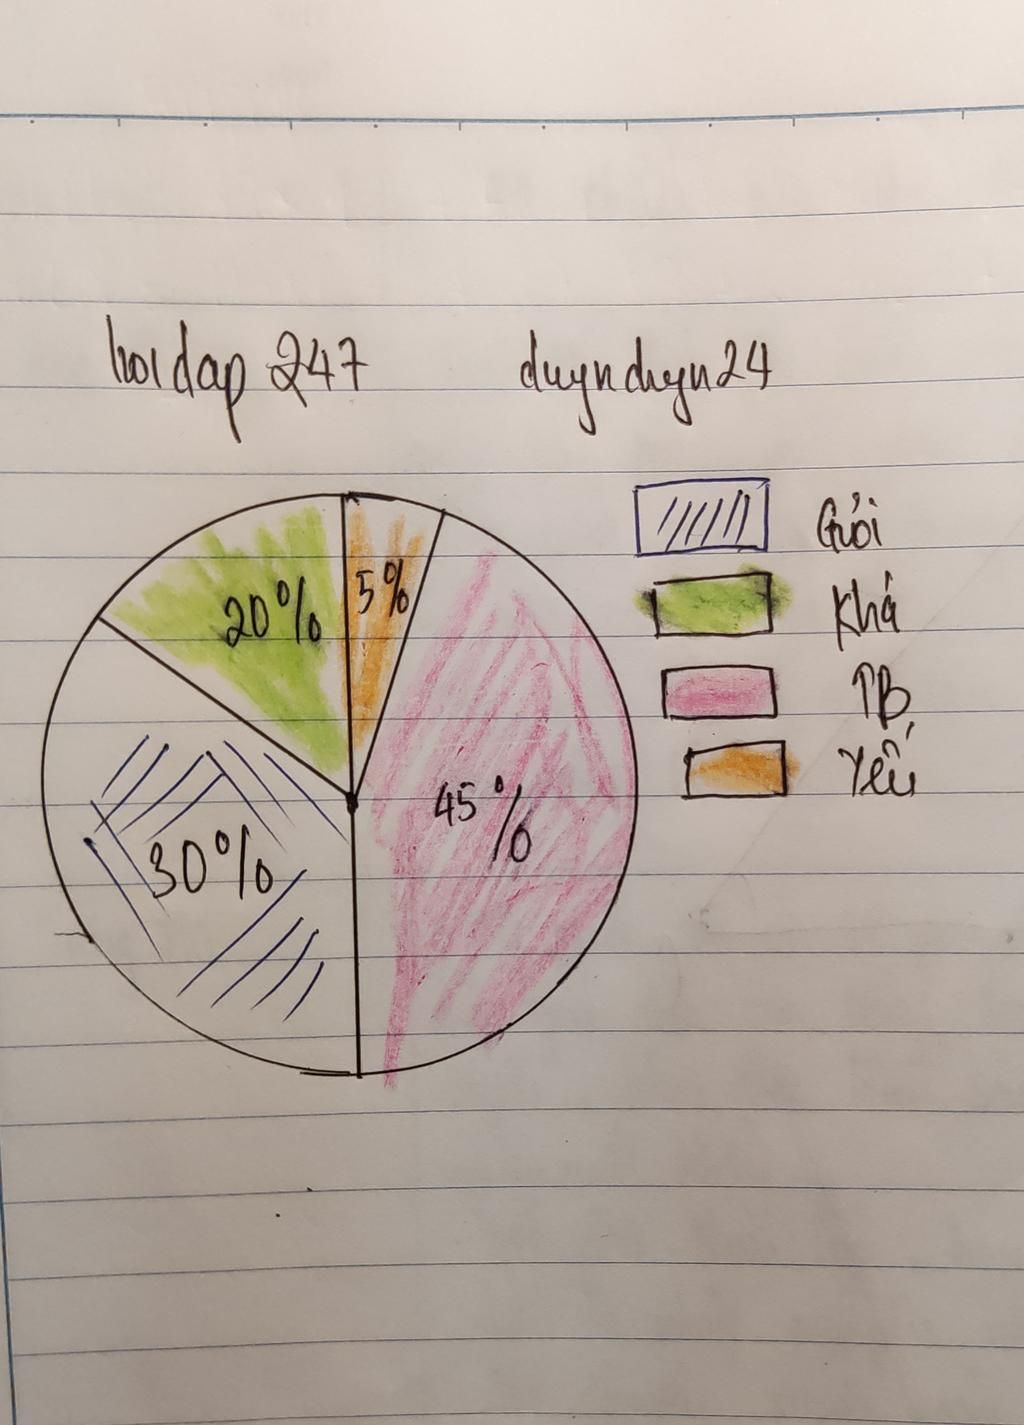 hoidap 247 duynduyn24
20% 5%
45%
30%
Giỏi
Khá
TB
Yếu